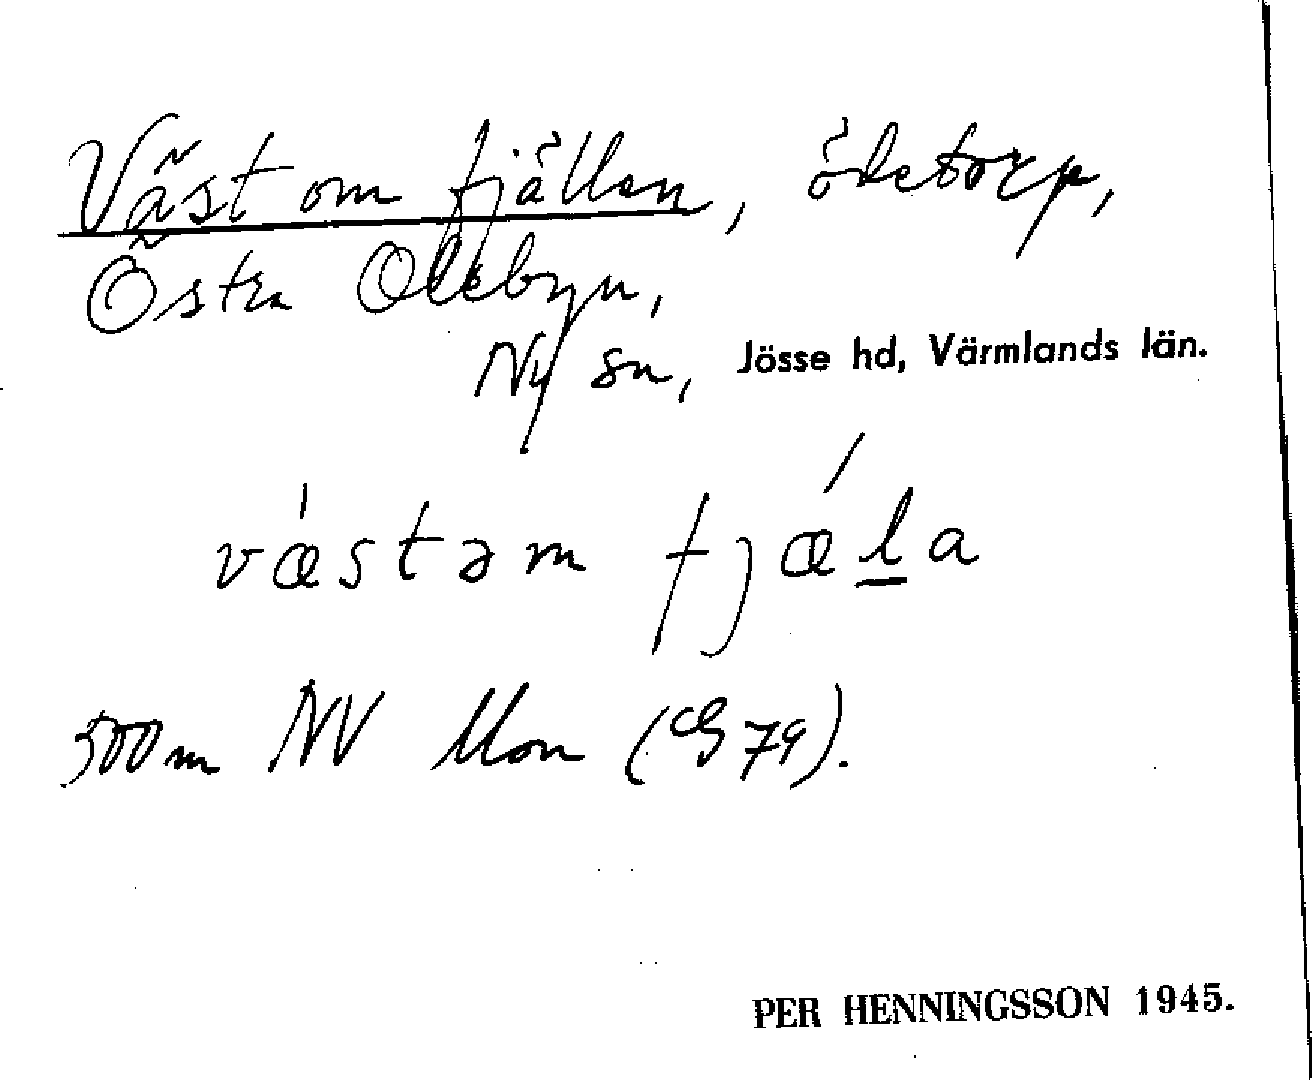 Väst om fjällen, ödetorp,
Östra Olebyn,
Ny sn, Jösse hd, Värmlands län.
vǽstəm fjǽl̲a
500 m NV Mon (G 79).
PER HENNINGSSON 1945.